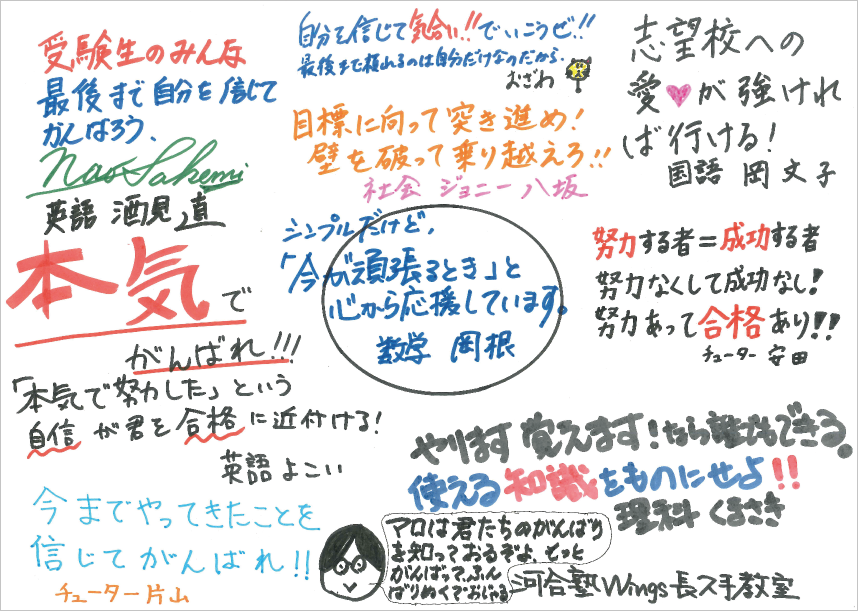 受験生のみんな
最後まで自分を信じて
がんばろう、
Nao Sakemi
英語 酒見 直
自分を信じて気合い!!でいこうぜ!!
最後まで頼れるのは自分だけなのだから。
おざわ
目標に向って突き進め!
壁を破って乗り越えろ!!
社会 ジョニー八坂
志望校への
愛♥が強けれ
ば行ける!
国語 岡 文子
本気で
がんばれ!!!
「本気で努力した」という
自信が君を合格に近付ける!
英語 よこい
シンプルだけど、
「今が頑張るとき」と
心から応援しています。
数学 岡根
努力する者=成功する者
努力なくして成功なし!
努力あって合格あり!!
チューター 安田
やります 覚えます!なら誰でもできる。
使える知識をものにせよ!!
理科 くまさき
今までやってきたことを
信じてがんばれ!!
チューター片山
マロは君たちのがんばり
を知っておるぞよ、もっと
がんばって、ふん
ばりぬくでおじゃる
河合塾Wings長久手教室